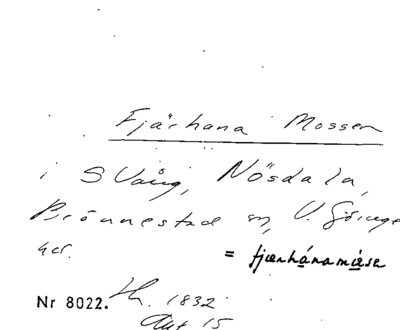 Fjärhana Mossen
i S Vång, Nösdala,
Brönnestad sn, V. Göinge
hd.
= fjærhánamåsa
Nr 8022. Lh. 1832
Akt 15